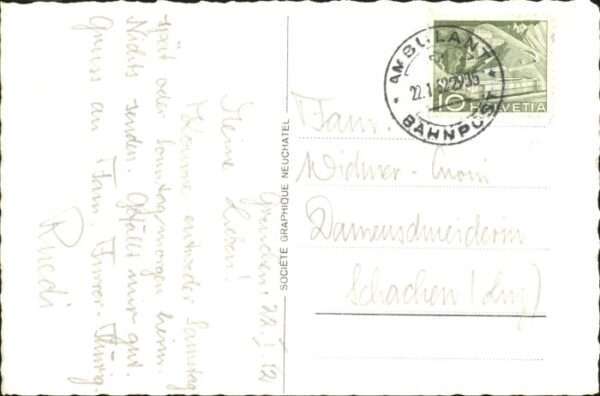 Grenchen, 22. I. 52
Meine Lieben!
Komme entweder Samstag
spät oder Sonntagmorgen heim.
Nichts senden. Gefällt mir gut.
Gruss an Fam.
Ruedi
SOCIÉTÉ GRAPHIQUE NEUCHATEL
AMBULANT
22.1.52
BAHNPOST
10 HELVETIA
Fam.
Widmer-
Damenschneiderin
Schachen (Luz)